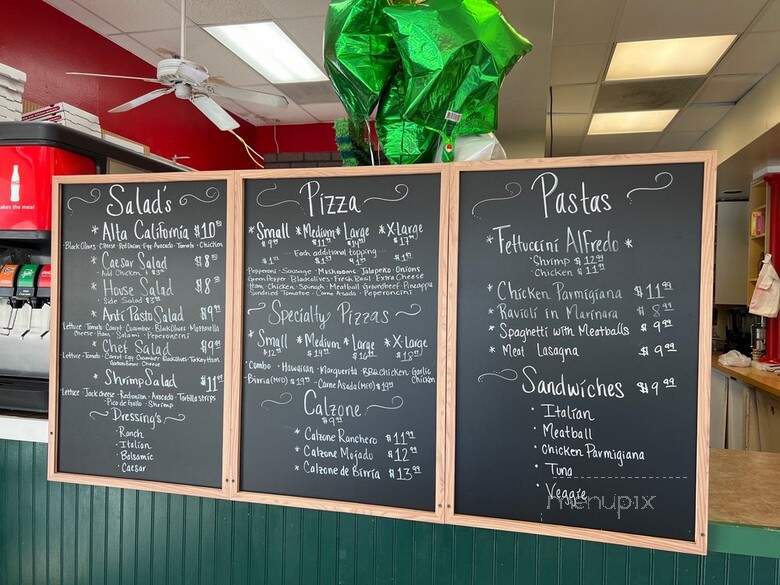 Salad's
* Alta California $10.50
Black Olives Cheese Red Onion Egg Avocado Tomato Chicken
* Caesar Salad $8.50
Add Chicken
* House Salad $8.50
Side Salad
* Anti Pasto Salad $9.99
Lettuce Tomato Carrot Cucumber Black Olives Mozzarella
Cheese Ham Salami Peperoncini
* Chef Salad $9.99
Lettuce Tomato Carrot Egg Cucumber Black Olives Turkey Ham
Cheese
* Shrimp Salad $11.99
Lettuce Jack cheese Red onion Avocado Tortilla strips
Pico de Gallo Shrimp
Dressing's
· Ranch
· Italian
· Balsamic
· Caesar
Pizza
* Small * Medium * Large * X-Large
Each additional topping
Pepperoni Sausage Mushrooms Jalapeño Onions
Green Pepper Black olives Fresh Basil Extra Cheese
Ham Chicken Spinach Meatball Ground beef Pineapple
Sundried Tomatoe Carne Asada Peperoncini
Specialty Pizzas
* Small * Medium * Large * X-Large
· Combo · Hawaiian · Marguerita · BBQ chicken Garlic
Chicken
· Birria (MED) $19.99 Carne Asada (MED) $19.99
Calzone
$9.99
* Calzone Ranchero $11.99
* Calzone Mojado $12.99
* Calzone de Birria $13.99
Pastas
* Fettuccini Alfredo *
· Shrimp $12.99
· Chicken $11.99
* Chicken Parmigiana $11.99
* Ravioli in Marinara $8.99
* Spaghetti with Meatballs $9.99
* Meat Lasagna $9.99
Sandwiches $9.99
· Italian
· Meatball
· Chicken Parmigiana
· Tuna
· Veggie
menupix